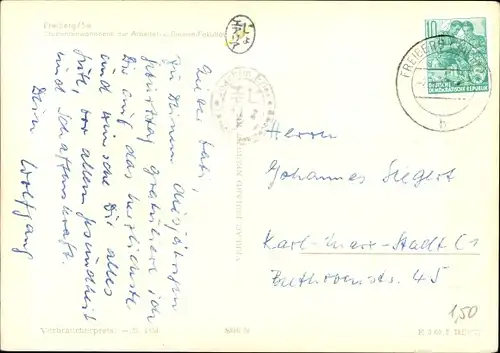 Freiberg/Sa.
Studentenwohnheim der Arbeiter- u. Bauern-Fakultät
Guter Vati,
zu Deinem diesjährigen
Geburtstag gratuliere ich
Dir auf das herzlichste
und wünsche Dir alles
Gute, vor allem Gesundheit
und Schaffenskraft.
Dein Wolfgang
10
DEUTSCHE
DEMOKRATISCHE REPUBLIK
FREIBERG
b
Herrn
Johannes Siegert
Karl-Marx-Stadt C1
Beethovenstr. 45
1,50
Verbraucherpreis